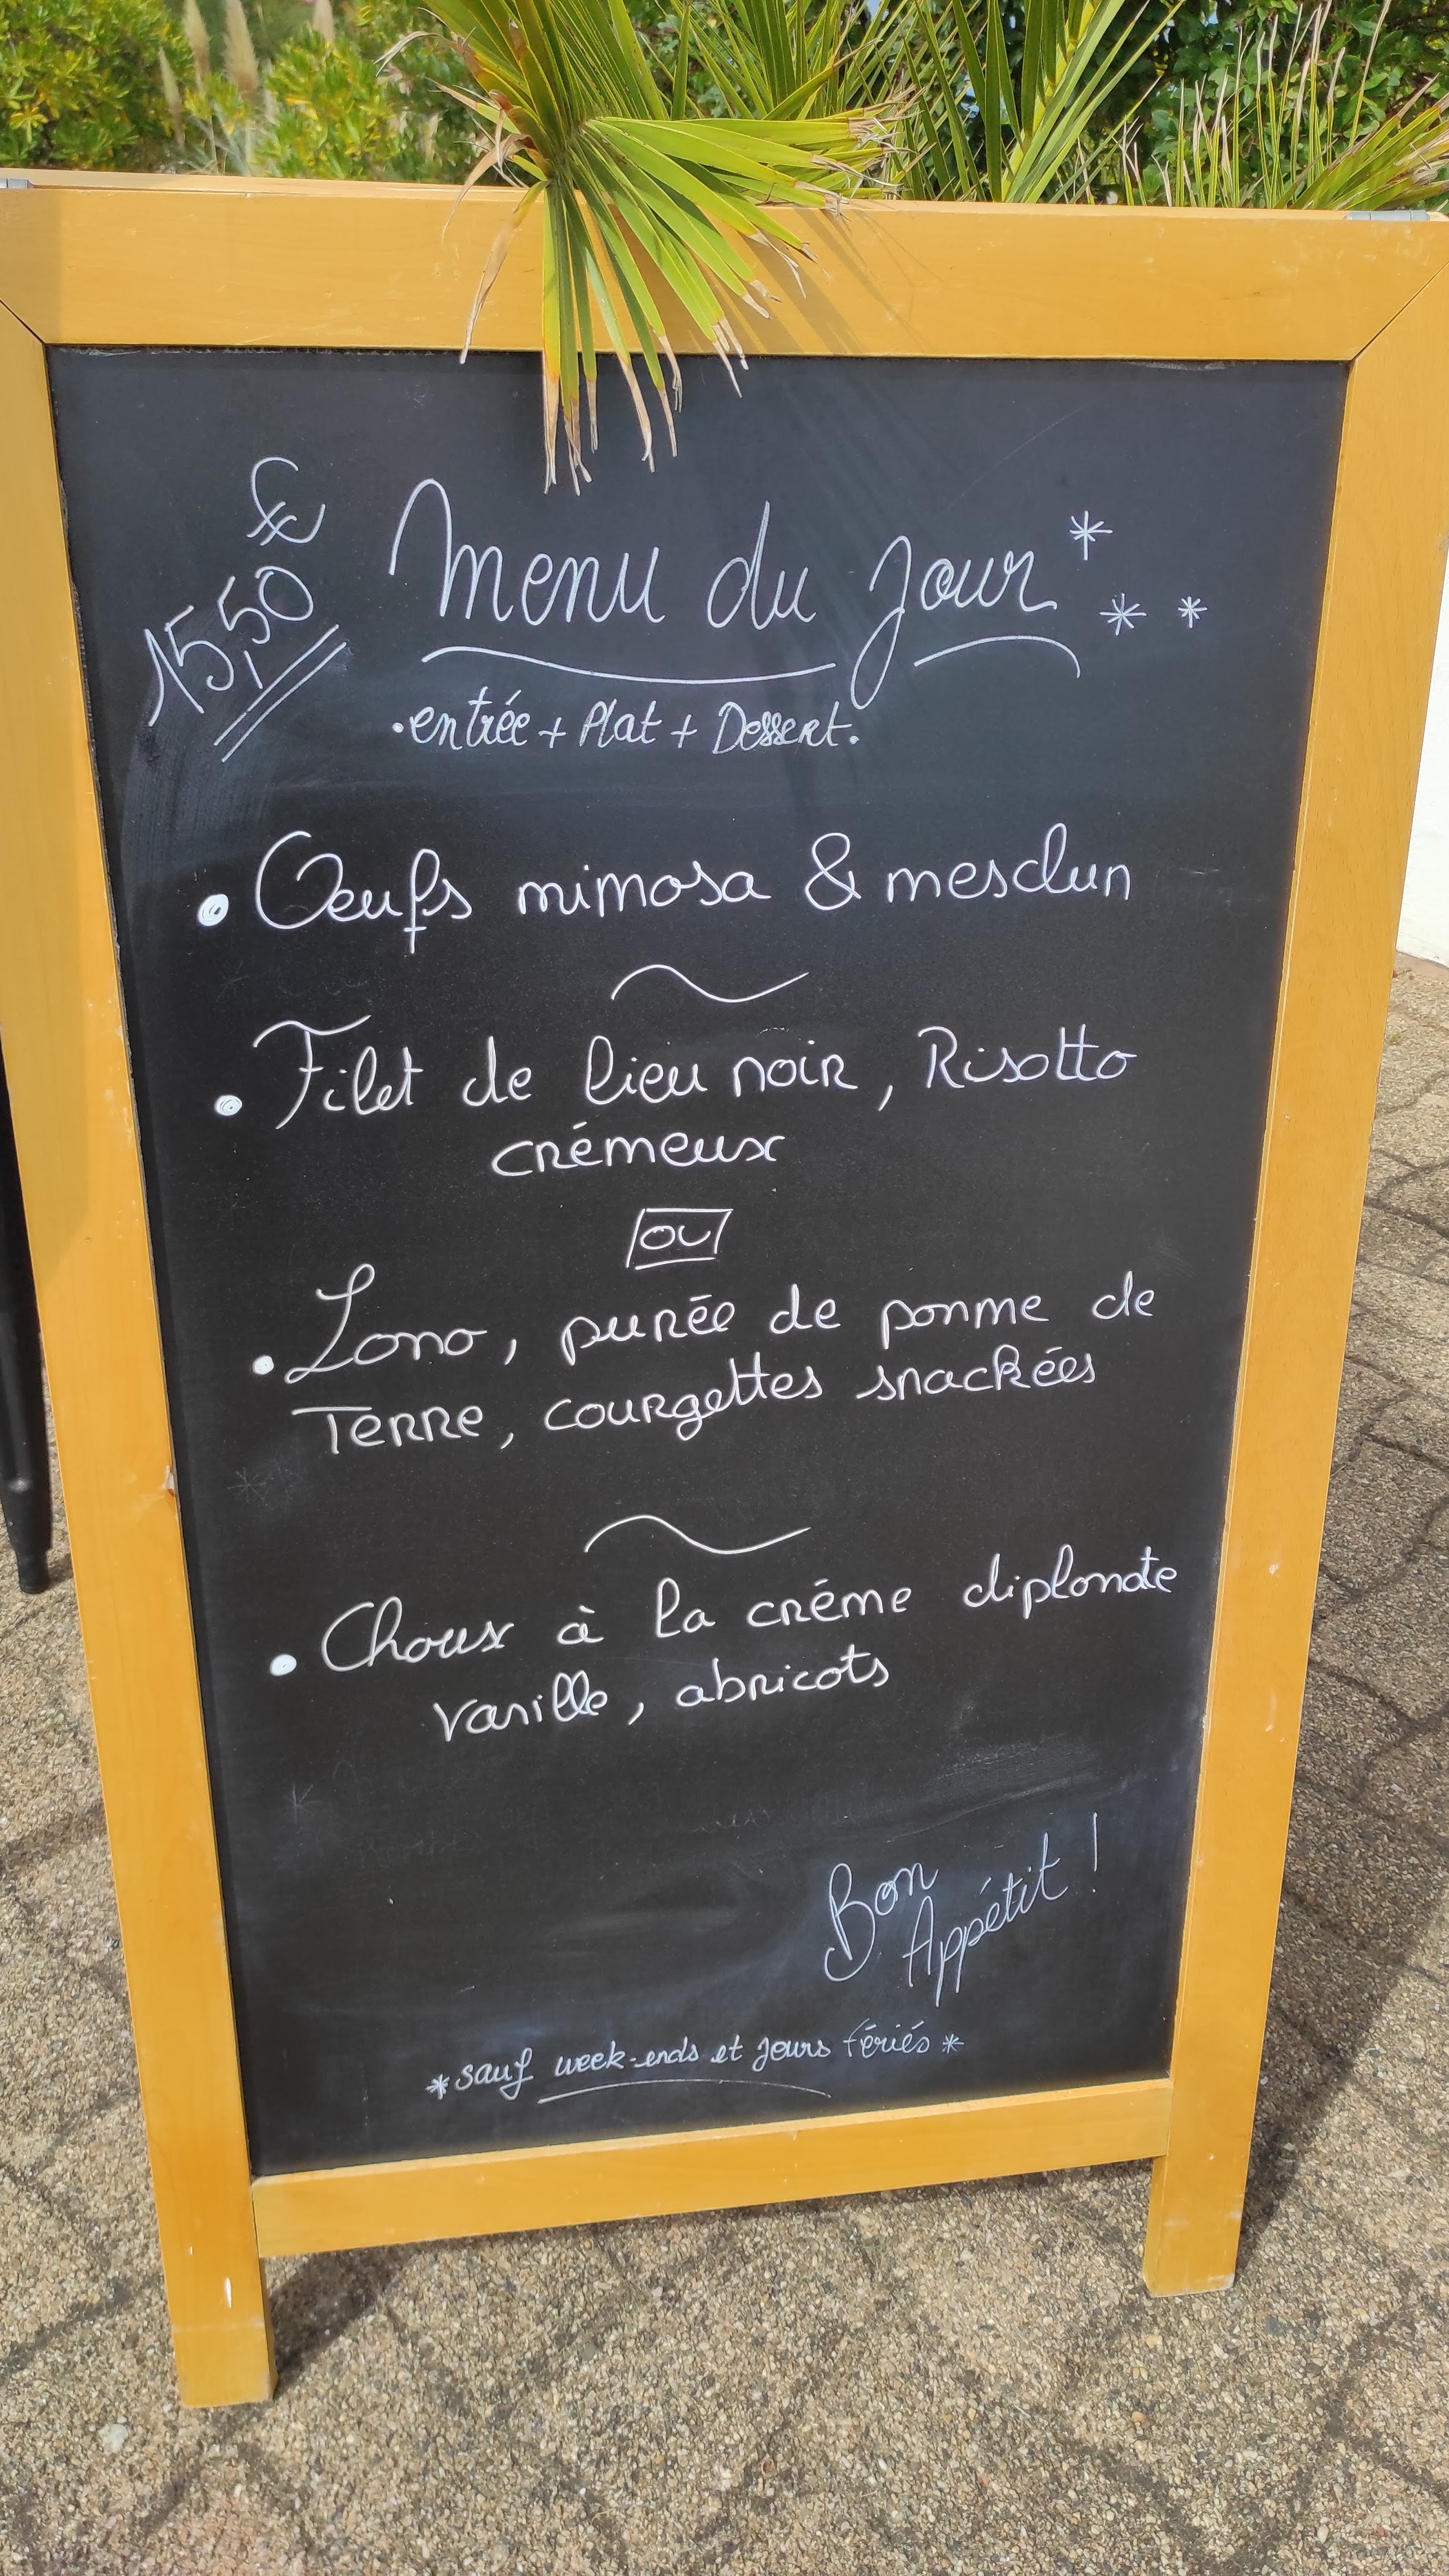 15,50 €
Menu du Jour
• entrée + Plat + Dessert.
• Oeufs mimosa & mesclun
• Filet de lieu noir, Risotto
crémeux
ou
• Lomo, purée de pomme de
Terre, courgettes snackées
• Choux à la crème diplomate
vanille, abricots
Bon
Appétit !
* sauf week-ends et jours fériés *